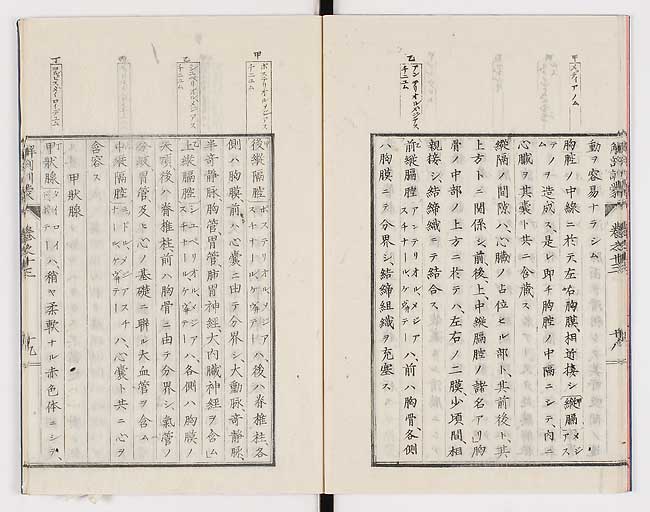 動ヲ容易ナラシム
胸腔ノ中線ニ於テ左右胸膜、相近接シ縦膈メジアス
アノムヲ造成ス、是レ即チ胸腔ノ中隔ニシテ、内ニ
心臓ヲ其嚢ト共ニ含蔵ス
縦隔ノ間隙ハ、心臓ノ占位ヒル部ト、其前後ト、其
上方トニ関係シ、前後上中縦膈腔ノ諸名アリ胸
骨ノ中部ノ上方ニ於テハ、左右ノ二膜、少頃間相
親接シ、結締織ニテ結合ス
前縦膈腔アンテリオル、メジアスチナールケ𛂦テーハ、前ハ胸骨、各側
ハ胸膜ニテ分界シ、結締組織ヲ充塞ス
甲
メディアノム
乙
解剖訓蒙
巻之十三
十八
後縦膈腔ポステリオル、メジアスチナールケ𛂦テーハ、後ハ脊椎柱、各
側ハ胸膜、前ハ心嚢ニ由テ分界シ、大動脉、奇静脉、
半奇静脉、胸管、胃管、肺胃神経、大内臓神経ヲ含ム
上縦膈腔シュペリオル、メジアスチナールケ𛂦テーハ、各側ハ胸膜ノ
天頂、後ハ脊椎柱、前ハ胸骨ニ由テ分界シ、氣管ノ
分岐、胃管、及ヒ心ノ基礎ニ聯ル大血管ヲ含ム
中縦隔腔ミッドル、メジアスチナールケ𛂦テーハ、心嚢ト共ニ心ヲ
含容ス
甲状腺
甲状腺タイロイドハ、稍ヤ柔軟ナル赤色体ニシテ、
甲
ポステリオルメジアスチニユム
乙
シュペリオルメジアスチニユム
丁
解剖訓蒙
巻之十三
十九